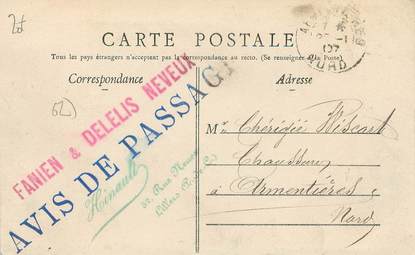 2f
CARTE POSTALE
Tous les pays étrangers n'acceptent pas la correspondance au recto. (Se renseigner à la Poste)
Correspondance
Adresse
62
FANIEN & DELELIS NEVEUX
AVIS DE PASSAGE
Hinault
32, Rue
Lillers
07
NORD
Mr
Chaussures
à Armentières
Nord